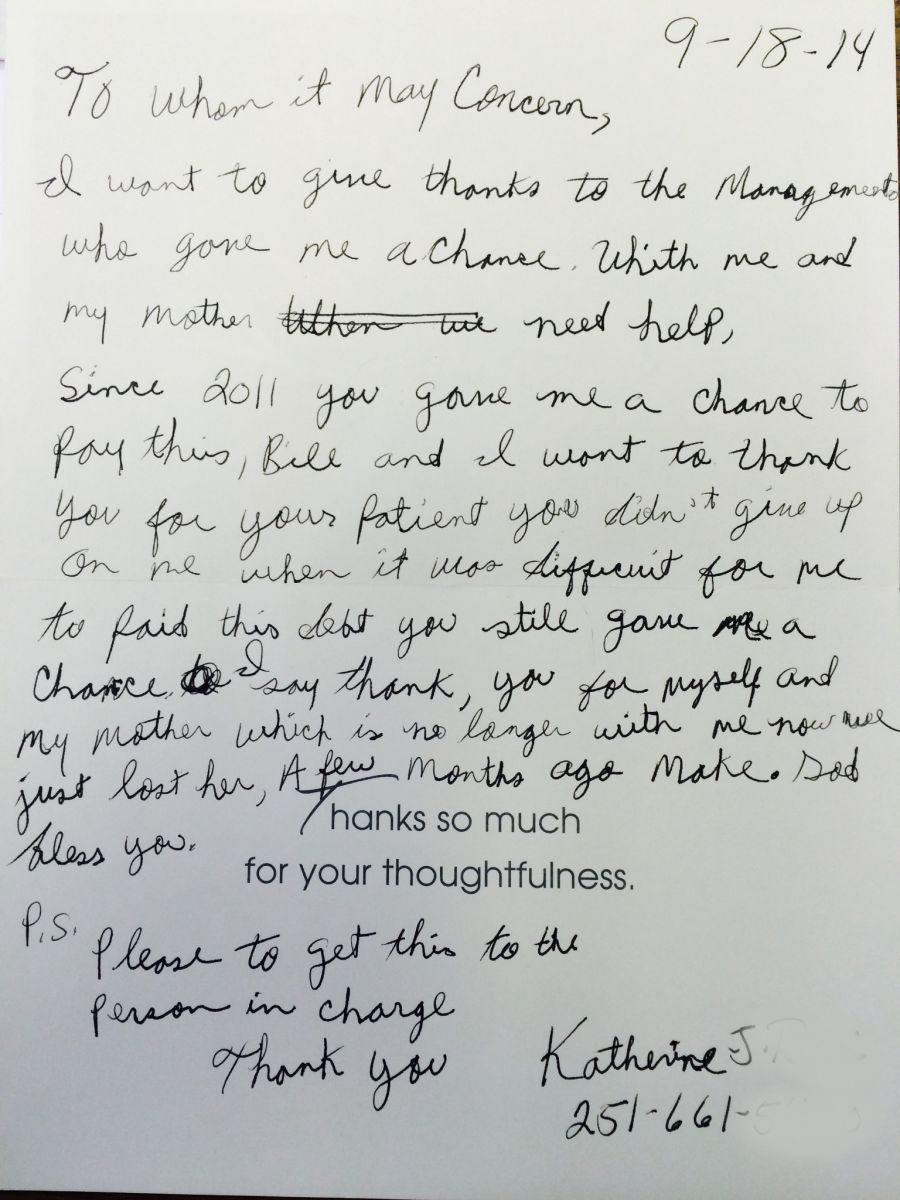 9-18-14
To Whom it May Concern,
I want to give thanks to the Management
who gave me a Chance. Whith me and
my mother When we need help,
Since 2011 you gave me a chance to
Pay this, Bill and I want to thank
you for your Patient you didn't give up
On me when it was difficuit for me
to paid this debt you still gave me a
Chance I say thank, you for myself and
my mother which is no longer with me now we
just lost her, A few Months ago Make. God
bless you.
Thanks so much
for your thoughtfulness.
P.S.
Please to get this to the
Person in charge
Thank you Katherine J.
251-661-